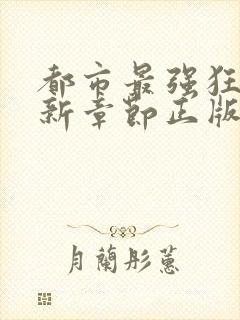 都市最强狂
新章节正版
月兰彤蕙